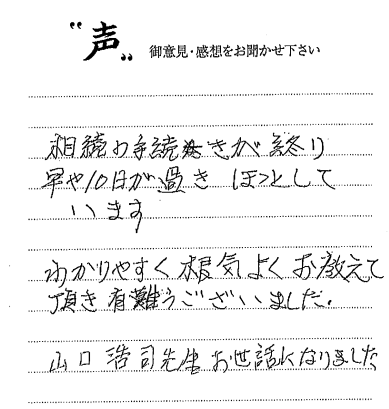 “声„ 御意見・感想をお聞かせ下さい
相続の手続きが終り
早や10日が過き ほっとして
います
わかりやすく根気よくお教えて
頂き有難うございました。
山口浩司先生お世話になりました